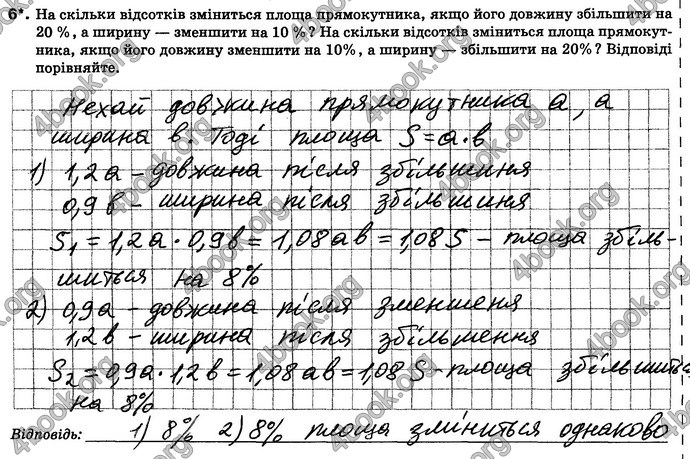 6*. На скільки відсотків зміниться площа прямокутника, якщо його довжину збільшити на
20 %, а ширину — зменшити на 10 %? На скільки відсотків зміниться площа прямокут-
ника, якщо його довжину зменшити на 10%, а ширину — збільшити на 20%? Відповіді
порівняйте.
Нехай довжина прямокутника a, а
ширина в. Тоді площа S=a·в
1) 1,2a - довжина після збільшиння
0,9в - ширина після збільшиня
S₁ = 1,2a · 0,9в = 1,08 aв = 1,08 S - площа збіль-
шиться на 8%
2) 0,9a - довжина після зменшеня
1,2в - ширина після збільшення
S₂ = 0,9a · 1,2в = 1,08 aв = 1,08 S - площа збільшиться
на 8%
Відповідь: 1) 8% 2) 8% площа зміниться однаково
4book.org